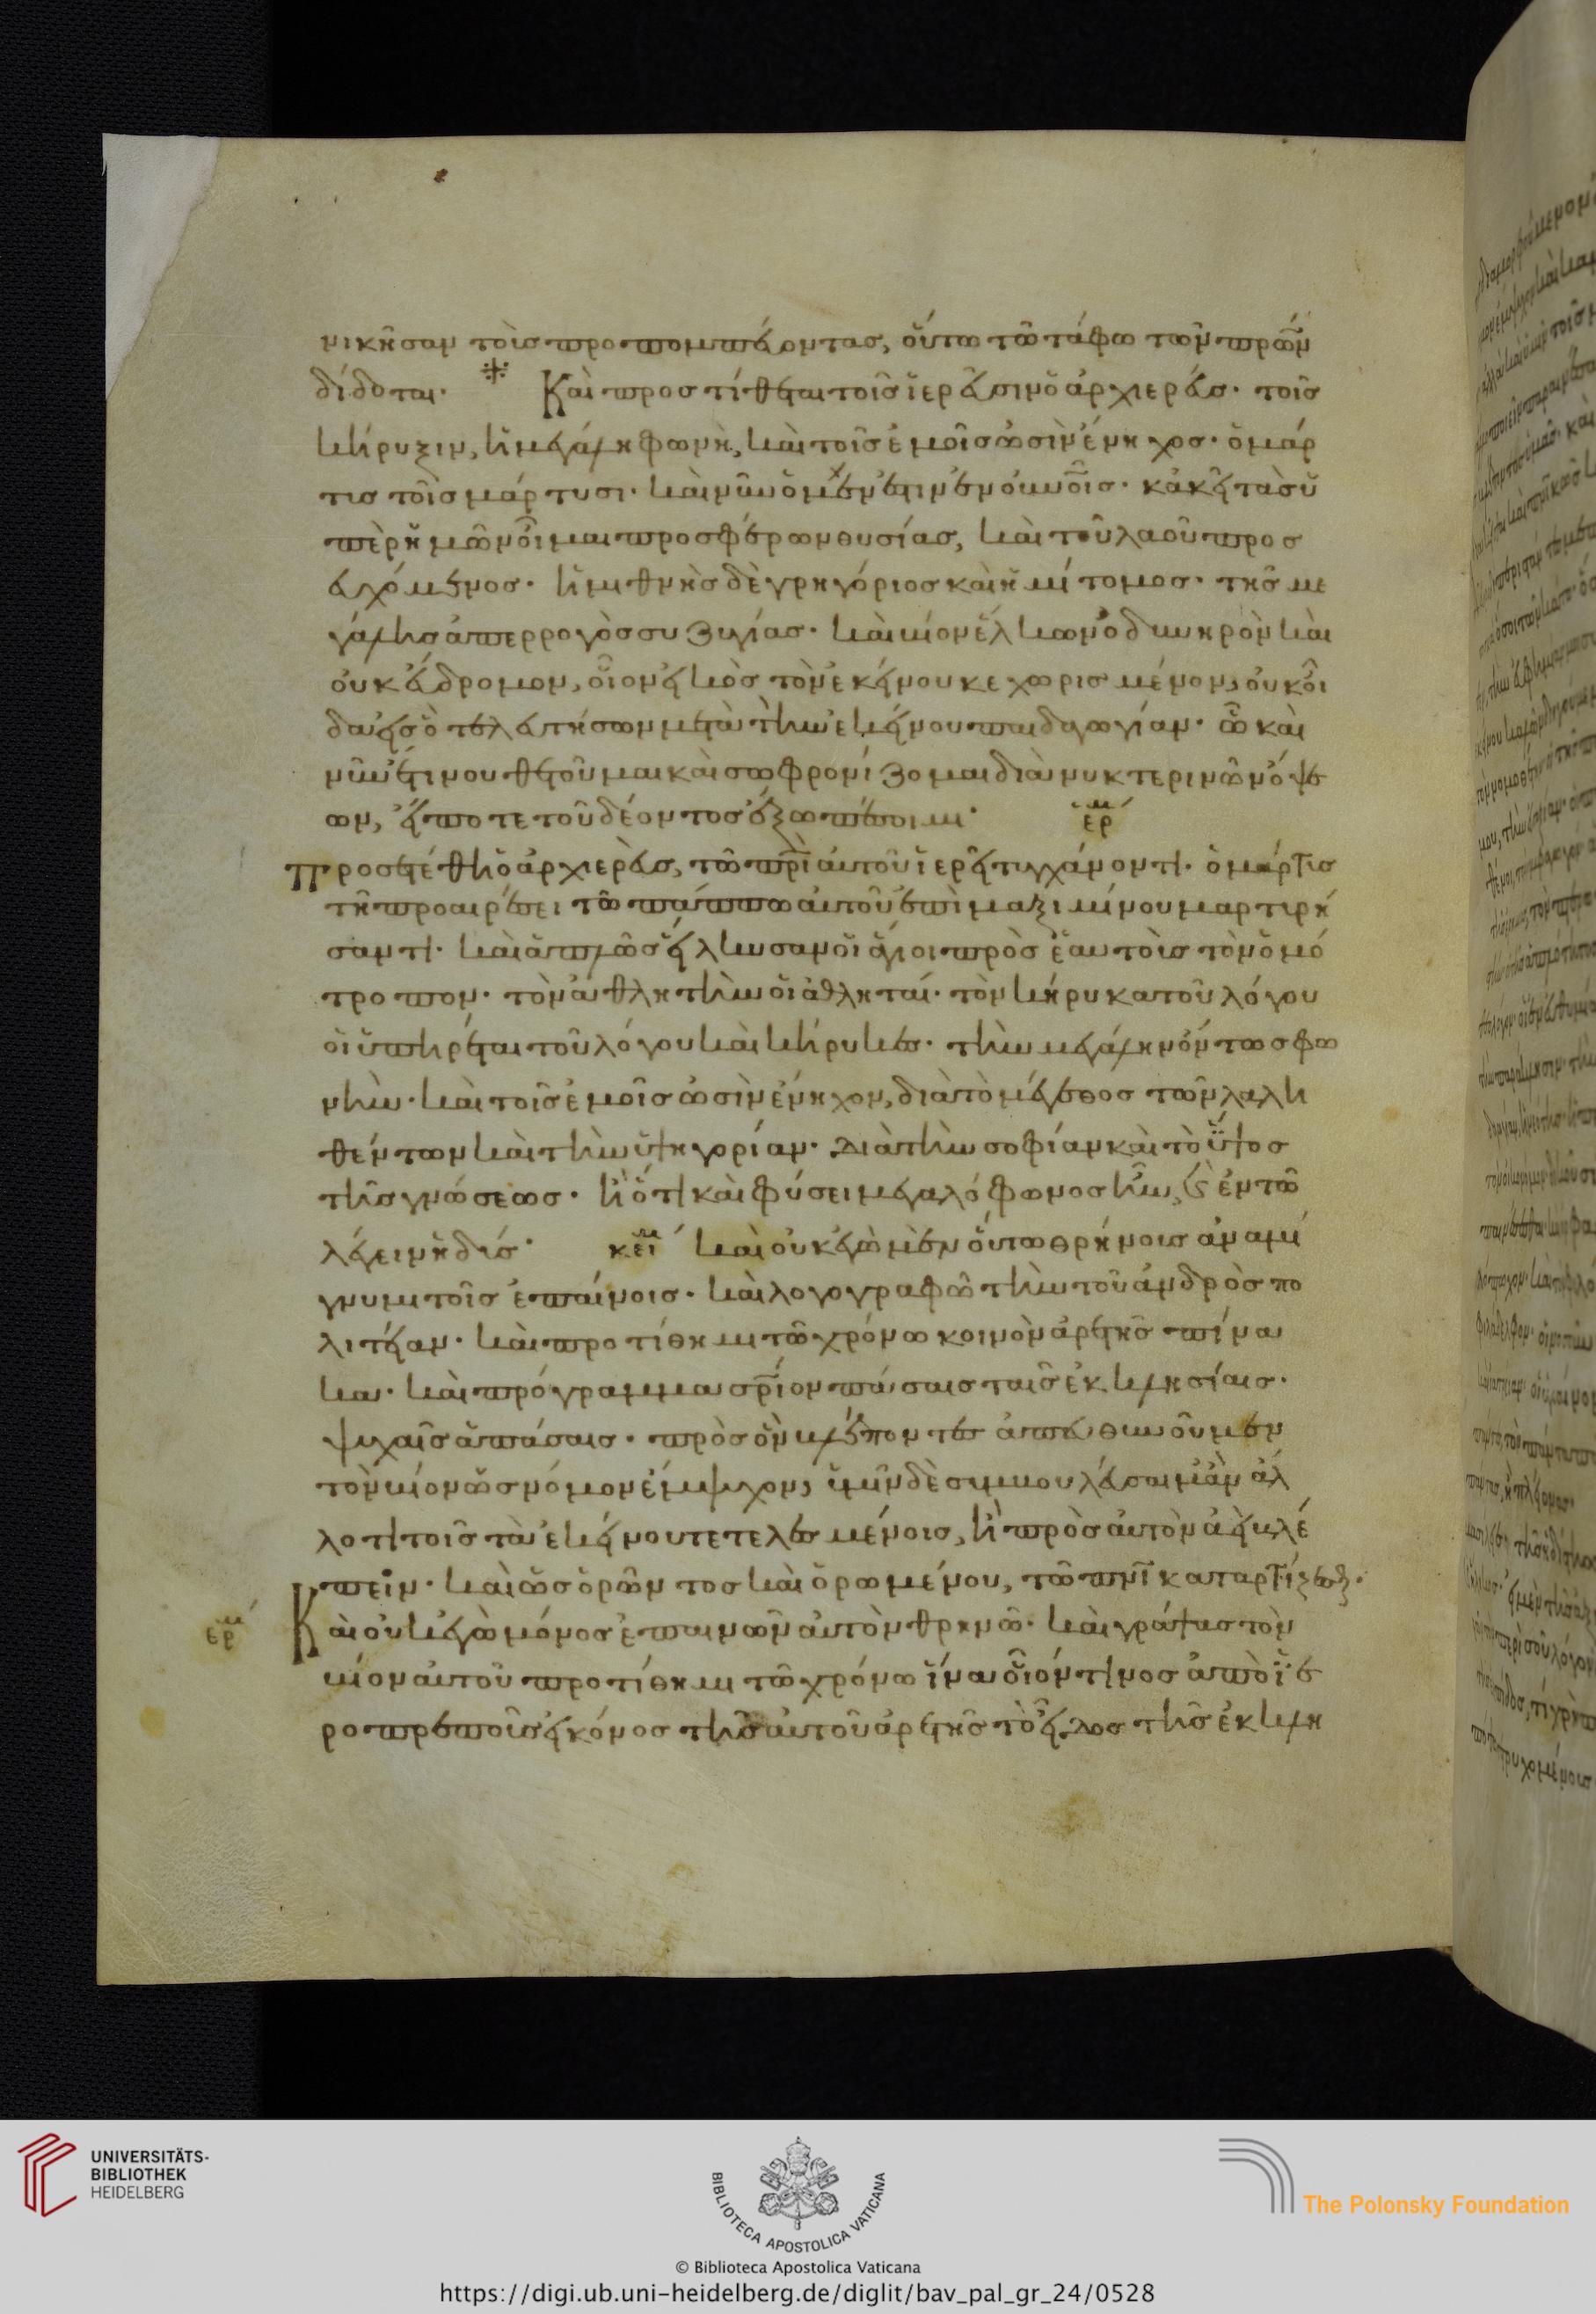 νικῆσαν τοὺς προπομπεύοντας, οὕτω τῶ τάφω τῶν πρων
δίδοται. Καὶ προστίθεται τοῖς ἱερεῦσιν ὁ ἀρχιερεύς. τοῖς
κήρυξιν, ἡ μεγάλη φωνὴ, καὶ τοῖς ἐμοῖς ὠσὶν ἔνηχος. ὁ μάρ
τυς τοῖς μάρτυσι. καὶ νῦν ὁ μέν ἐστιν ἐν οὐνοῖς. κἀκεῖ τὰς ὑ
πὲρ ἡμῶν οἶμαι προσφέρων θυσίας, καὶ τοῦ λαοῦ προσ
ευχόμενος. ἡμιθνὴς δὲ γρηγόριος καὶ ἡμίτομος. τῆς με
γάλης ἀπερρογὼς συζυγίας. καὶ βίον ἕλκων ὀδυνηρὸν καὶ
οὐκ εὔδρομον, οἷον εἰκὸς τὸν ἐκείνου κεχωρισμένον, οὐκ οἶ
δα εἰς ὃ τελευτήσων μετὰ τὴν ἐκείνου παιδαγωγίαν. ὧ καὶ
νῦν ἔτι νουθετοῦμαι καὶ σωφρονίζομαι διὰ νυκτερινῶν ὄψε
ων, εἴ ποτε τοῦ δέοντος ἔξω πέσοιμι. ἑρμ
Προσετέθη ὁ ἀρχιερεὺς, τῶ πρι αὐτοῦ ἱερεῖ τυγχάνοντι. ὁ μάρτυς
τῆ προαιρέσει τῶ πάππω αὐτοῦ ἐπὶ μαξιμίνου μαρτυρή
σαντι. καὶ ἁπλῶς εἵλκυσαν οἱ ἅγιοι πρὸς ἑαυτοὺς τὸν ὁμό
τροπον. τὸν ἀθλητὴν οἱ ἀθληταί. τὸν κήρυκα τοῦ λόγου
οἱ ὑπηρέται τοῦ λόγου καὶ κήρυκες. τὴν μεγάλην ὄντως φω
νὴν. καὶ τοῖς ἐμοῖς ὠσὶν ἔνηχον, διὰ τὸ μέγεθος τῶν λαλη
θέντων καὶ τὴν ὑψηγορίαν. διὰ τὴν σοφίαν καὶ τὸ ὕψος
τῆς γνώσεως. ἢ ὅτι καὶ φύσει μεγαλόφωνος ἦν, κὰν τῶ
λέγειν ἡδύς. κεῖμ καὶ οὐκ ἐγὼ μὲν οὕτω θρήνοις ἀναμί
γνυμι τοῖς ἐπαίνοις. καὶ λογογραφῶ τὴν τοῦ ἀνδρὸς πο
λιτείαν. καὶ προτίθημι τῶ χρόνω κοινὸν ἀρετῆς πίνα
κα. καὶ πρόγραμμα σριον πάσαις ταῖς ἐκκλησίαις.
ψυχαῖς ἁπάσαις. πρὸς ὃν βλέποντες ἀπευθυνοῦμεν
τὸν βίον ὡς νόμον ἔμψυχον, ὑμῖν δὲ συμβουλεύσαιμ' ἂν ἄλ
λο τι τοῖς τὰ ἐκείνου τετελεσμένοις, ἢ πρὸς αὐτὸν ἀεὶ βλέ
πειν. καὶ ὡς ὁρῶντος καὶ ὁρωμένου, τῶ πνι καταρτίζεσθ.
ἑρμ Καὶ οὐκ ἐγὼ μόνος ἐπαινῶν αὐτὸν θρηνῶ. καὶ γράψας τὸν
βίον αὐτοῦ προτίθημι τῶ χρόνω ἵνα οἷόν τινος ἀπὸ ἱε
ροπρεποῦς εἰκόνος τῆς αὐτοῦ ἀρετῆς τὸ εἶδος τῆς ἐκκλη
UNIVERSITÄTS-
BIBLIOTHEK
HEIDELBERG
BIBLIOTECA APOSTOLICA VATICANA
The Polonsky Foundation
© Biblioteca Apostolica Vaticana
https://digi.ub.uni-heidelberg.de/diglit/bav_pal_gr_24/0528